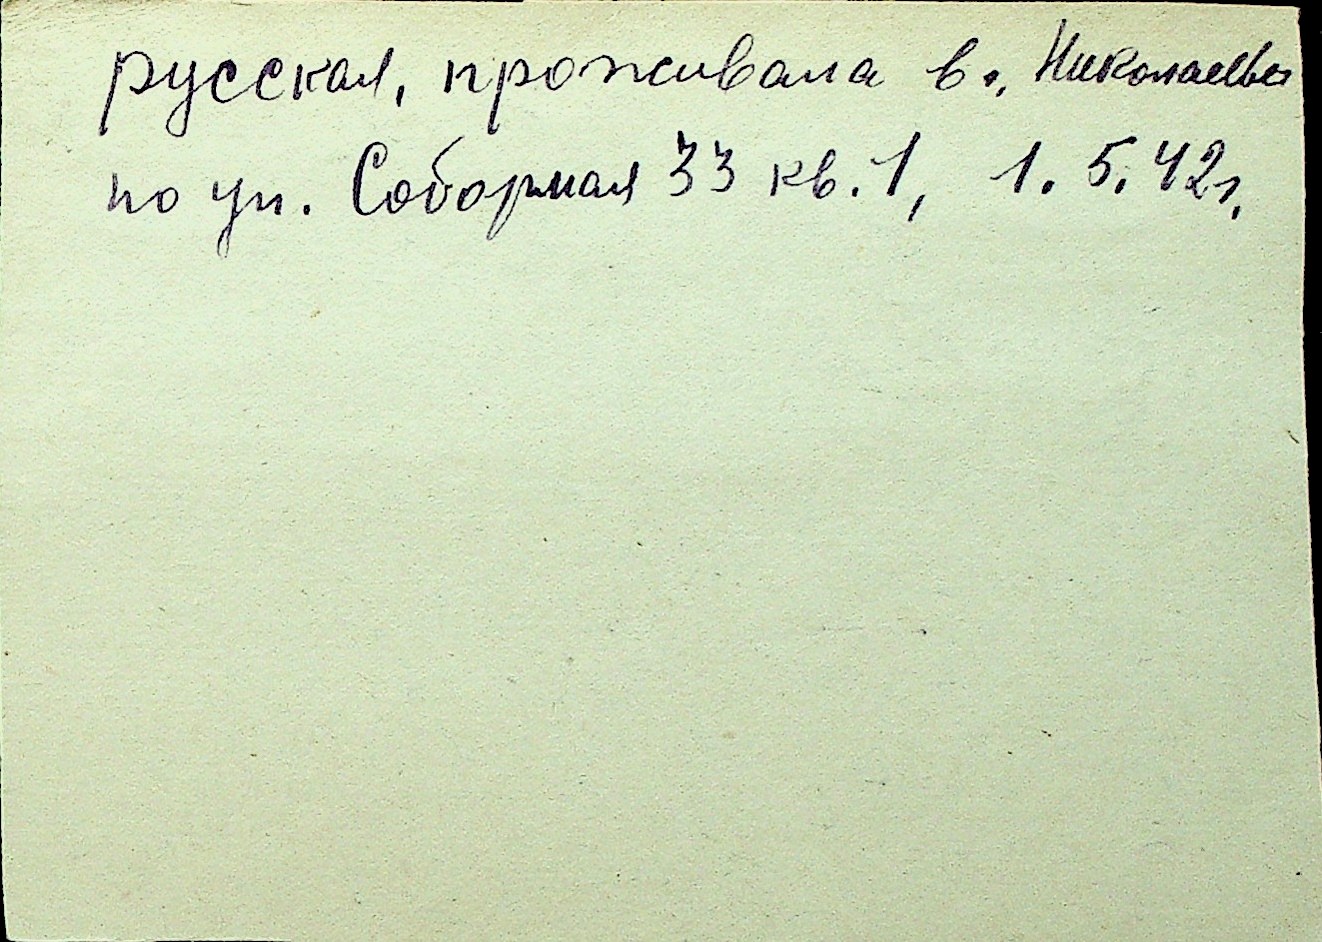 русская, проживала в г. Николаеве
по ул. Соборная 33 кв. 1, 1. 5. 42 г.